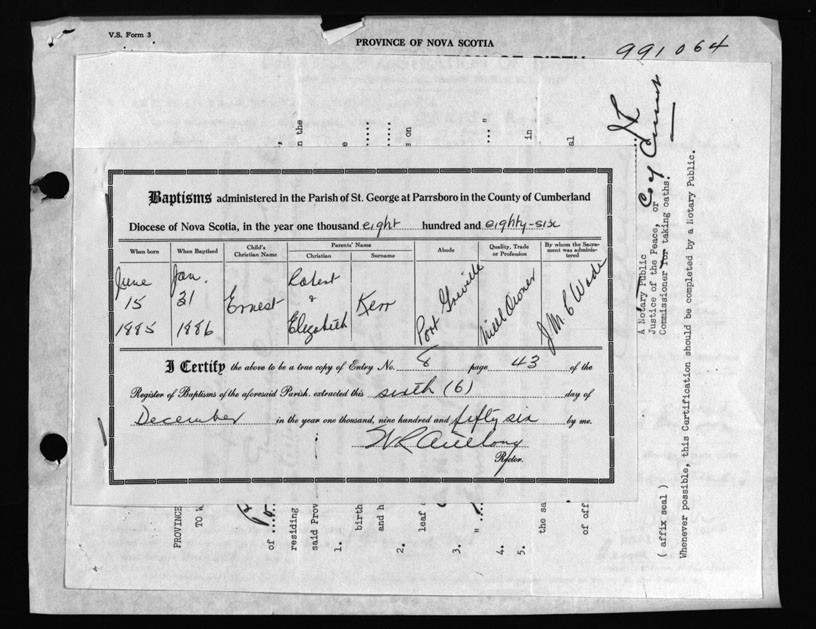 V.S. Form 3
PROVINCE OF NOVA SCOTIA
991064
Baptisms administered in the Parish of St. George at Parrsboro in the County of Cumberland
Diocese of Nova Scotia, in the year one thousand eight hundred and eighty-six
When born When Baptised Child's Christian Name Parents' Name Christian Surname Abode Quality, Trade or Profession By whom the Sacrament was administered
June 15 1885 Jan. 31 1886 Ernest Robert & Elizabeth Kerr Port Greville Mill Owner J M C Wade
I Certify the above to be a true copy of Entry No. 8 page 43 of the
Register of Baptisms of the aforesaid Parish. extracted this sixth (6) day of
December in the year one thousand, nine hundred and fifty six by me.
Rector.
A Notary Public
Justice of the Peace, or
Commissioner for taking oaths.
( affix seal )
Whenever possible, this Certification should be completed by a Notary Public.
PROVINCE
TO W
of ....
residing
said Prov
1. birth
and h
2. leaf
3. "
4.
5. the sa
of off
n the
e
s on
"
in
al